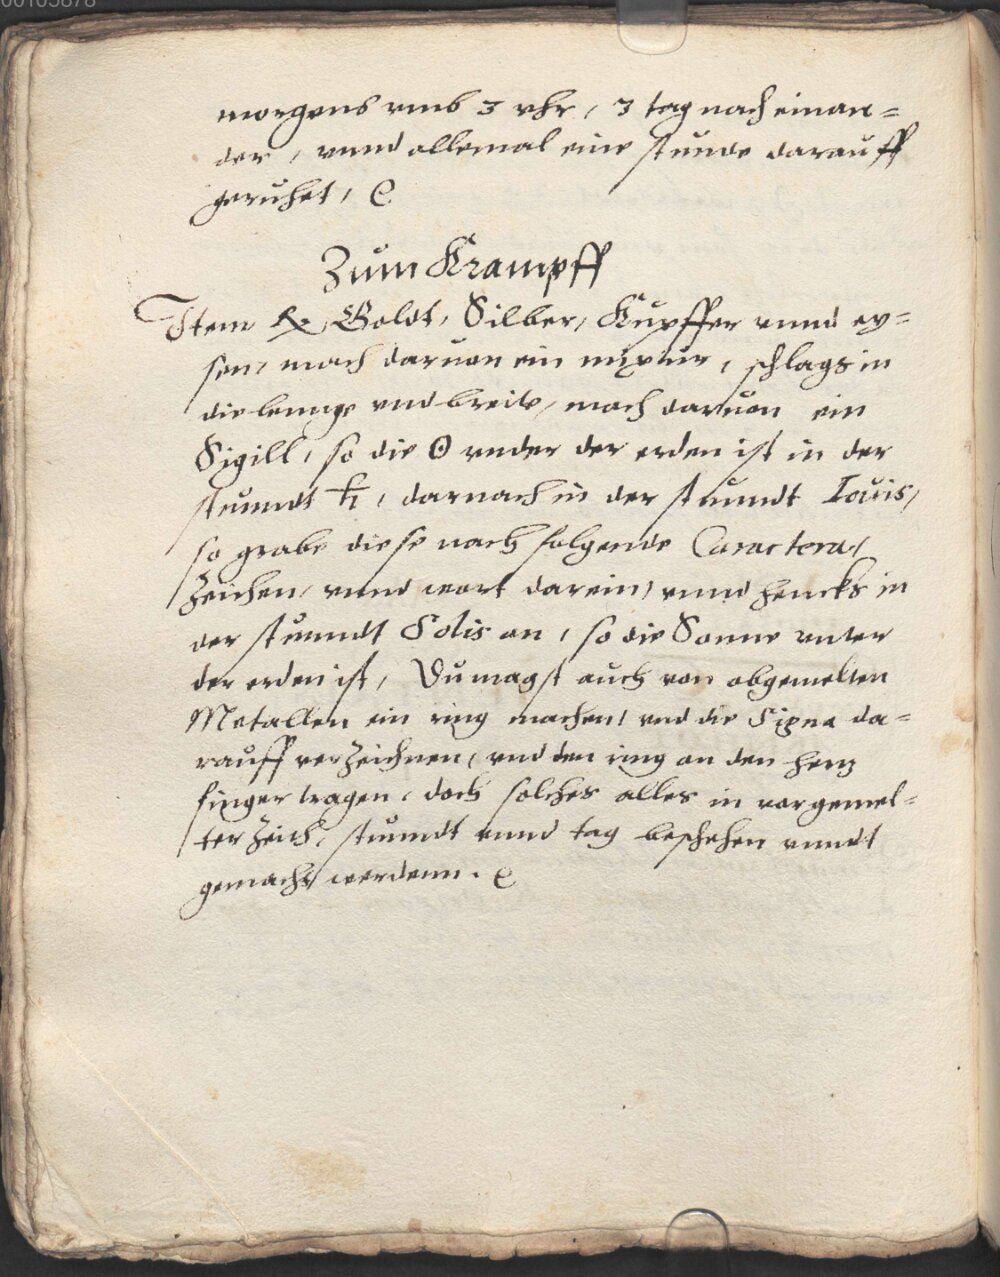 00105878
morgens vmb 3 vhr, 3 tag nach einan=
der, vnnd allemal eine stunde darauff
geruhet,
Zum Krampff
Item ℞ Goldt, Silber, Kupffer vnnd ey=
sen, mach daruon ein mixtur, schlags in
die lennge vnd breite, mach daruon ein
Sigill, so die ☉ vnder der erden ist in der
stunndt ♄, darnach in der stunndt Iouis,
so grabe diese nachfolgende Caracteres,
Zeichen, vnnd wort darein, vnnd hencks in
der stunndt Solis an, so die Sonne vnter
der erden ist, Du magst auch von obgemelten
Metallen ein ring machen, vnd die Signa da=
rauff verzeichnen, vnd den ring an den hertz
finger tragen, doch solches alles in vorgemel=
ter Zeith, stunndt vnnd tag beschehen vnndt
gemacht werdenn.